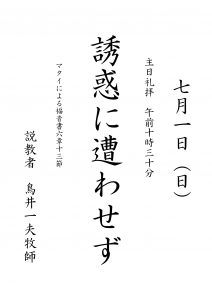 七月一日(日)
主日礼拝 午前十時三十分
誘惑に遭わせず
マタイによる福音書六章十三節
説教者 鳥井一夫牧師